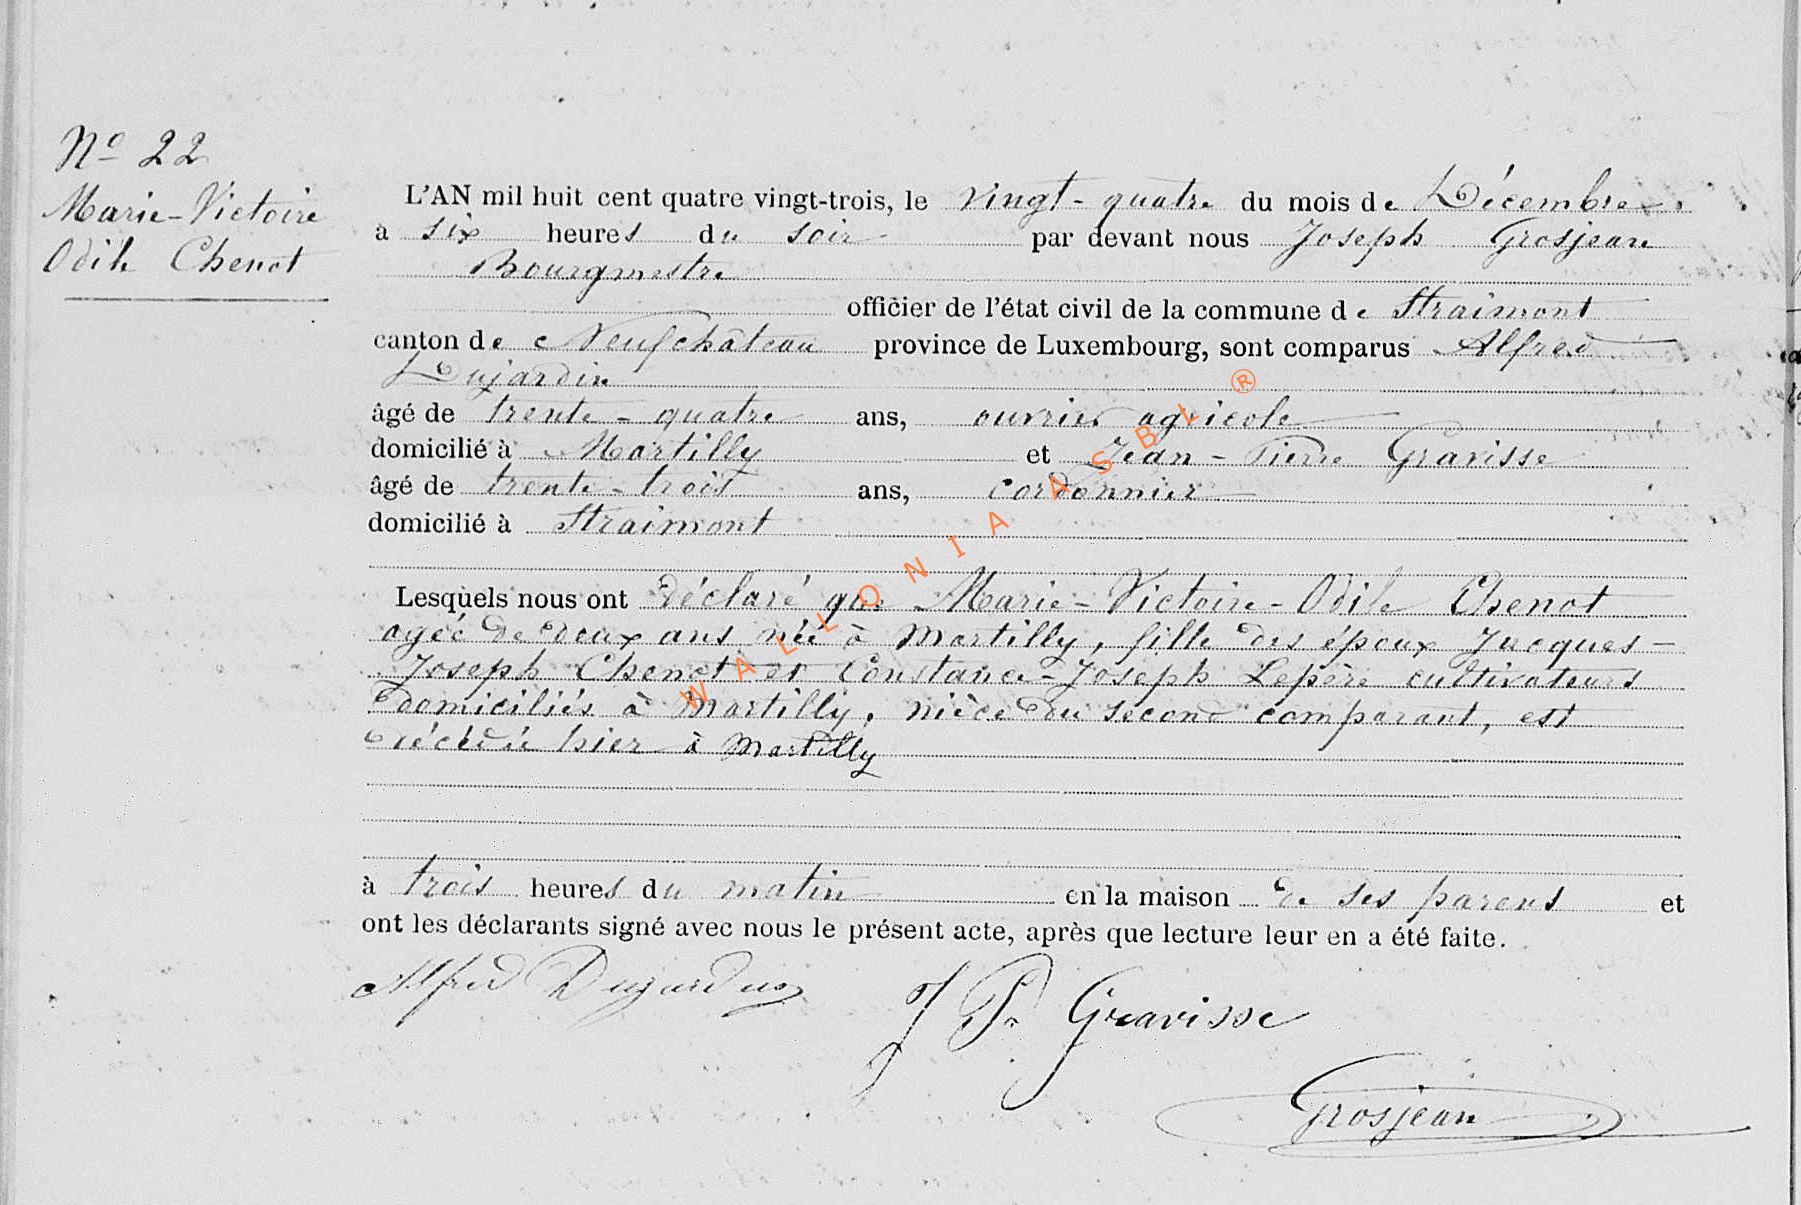 Nº 22
Marie-Victoire
Odile Chenot
L'AN mil huit cent quatre vingt-trois, le vingt-quatre du mois de Décembre
à six heures du soir par devant nous Joseph Grosjean
Bourgmestre
officier de l'état civil de la commune de Straimont
canton de Neufchâteau province de Luxembourg, sont comparus Alfred
Dujardin
âgé de trente-quatre ans, ouvrier agricole
domicilié à Martilly et Jean-Pierre Gravisse
âgé de trente-trois ans, cordonnier
domicilié à Straimont
Lesquels nous ont déclaré que Marie-Victoire-Odile Chenot
agée de deux ans née à Martilly, fille des époux Jacques-
Joseph Chenot et Constance-Joseph Lepère cultivateurs
domiciliés à Martilly, nièce du second comparant, est
décédée hier à Martilly
à trois heures du matin en la maison de ses parens et
ont les déclarants signé avec nous le présent acte, après que lecture leur en a été faite.
Alfred Dujardin
J Pr Gravisse
Grosjean
WALLONIA ASBL ®